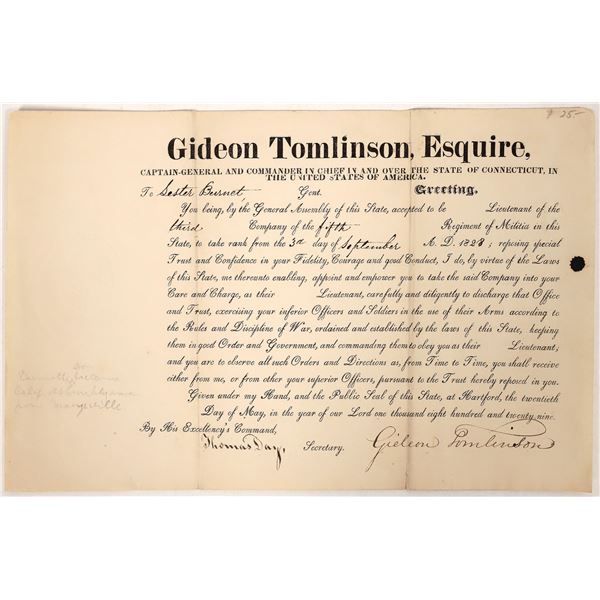 $ 25-
Gideon Tomlinson, Esquire,
CAPTAIN-GENERAL AND COMMANDER IN CHIEF IN AND OVER THE STATE OF CONNECTICUT, IN
THE UNITED STATES OF AMERICA.
To Lester Burnet Gent. Greeting.
You being, by the General Assembly of this State, accepted to be Lieutenant of the
third Company of the fifth Regiment of Militia in this
State, to take rank from the 3d day of September A. D. 1828; reposing special
Trust and Confidence in your Fidelity, Courage and good Conduct, I do, by virtue of the Laws
of this State, me thereunto enabling, appoint and empower you to take the said Company into your
Care and Charge, as their Lieutenant, carefully and diligently to discharge that Office
and Trust, exercising your inferior Officers and Soldiers in the use of their Arms according to
the Rules and Discipline of War, ordained and established by the laws of this State, keeping
them in good Order and Government, and commanding them to obey you as their Lieutenant;
and you are to observe all such Orders and Directions as, from Time to Time, you shall receive
either from me, or from other your superior Officers, pursuant to the Trust hereby reposed in you.
Given under my Hand, and the Public Seal of this State, at Hartford, the twentieth
Day of May, in the year of our Lord one thousand eight hundred and twenty nine.
By His Excellency's Command,
Thomas Day, Secretary. Gideon Tomlinson
from Marysville